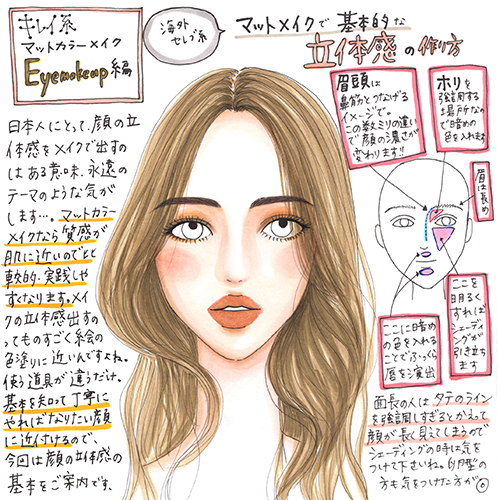 キレイ系
マットカラーメイク
Eyemakeup編
海外
セレブ系
マットメイクで基本的な
立体感の作り方
眉頭は
鼻筋とつなげる
イメージで。
この数ミリの違い
で顔の濃さが
変わります!!
ホリを
強調する
場所なの
で暗めの
色を入れます
眉は長め
日本人にとって、顔の立
体感をメイクで出すの
はある意味、永遠の
テーマのような気が
します…。マットカラー
メイクなら質感が
肌に近いので比と
較的・実践しや
すくなります。メイ
クの立体感出すの
ってものすごく絵の
色塗りに近いんですよね。
使う道具が違うだけ。
基本を知って丁寧に
やればなりたい顔
に近付けるので、
今回は顔の立体感の
基本をご案内です、
ここに暗め
の色を入れる
ことでふっくら
唇を演出
ここを
明るく
すれば
シェーディ
ングが
引き立ち
ます
面長の人はタテのライン
を強調しすぎるとかえって
顔が長く見えてしまうので
シェーディングの時に気を
つけて下さいね。卵型の
方も気をつけた方が